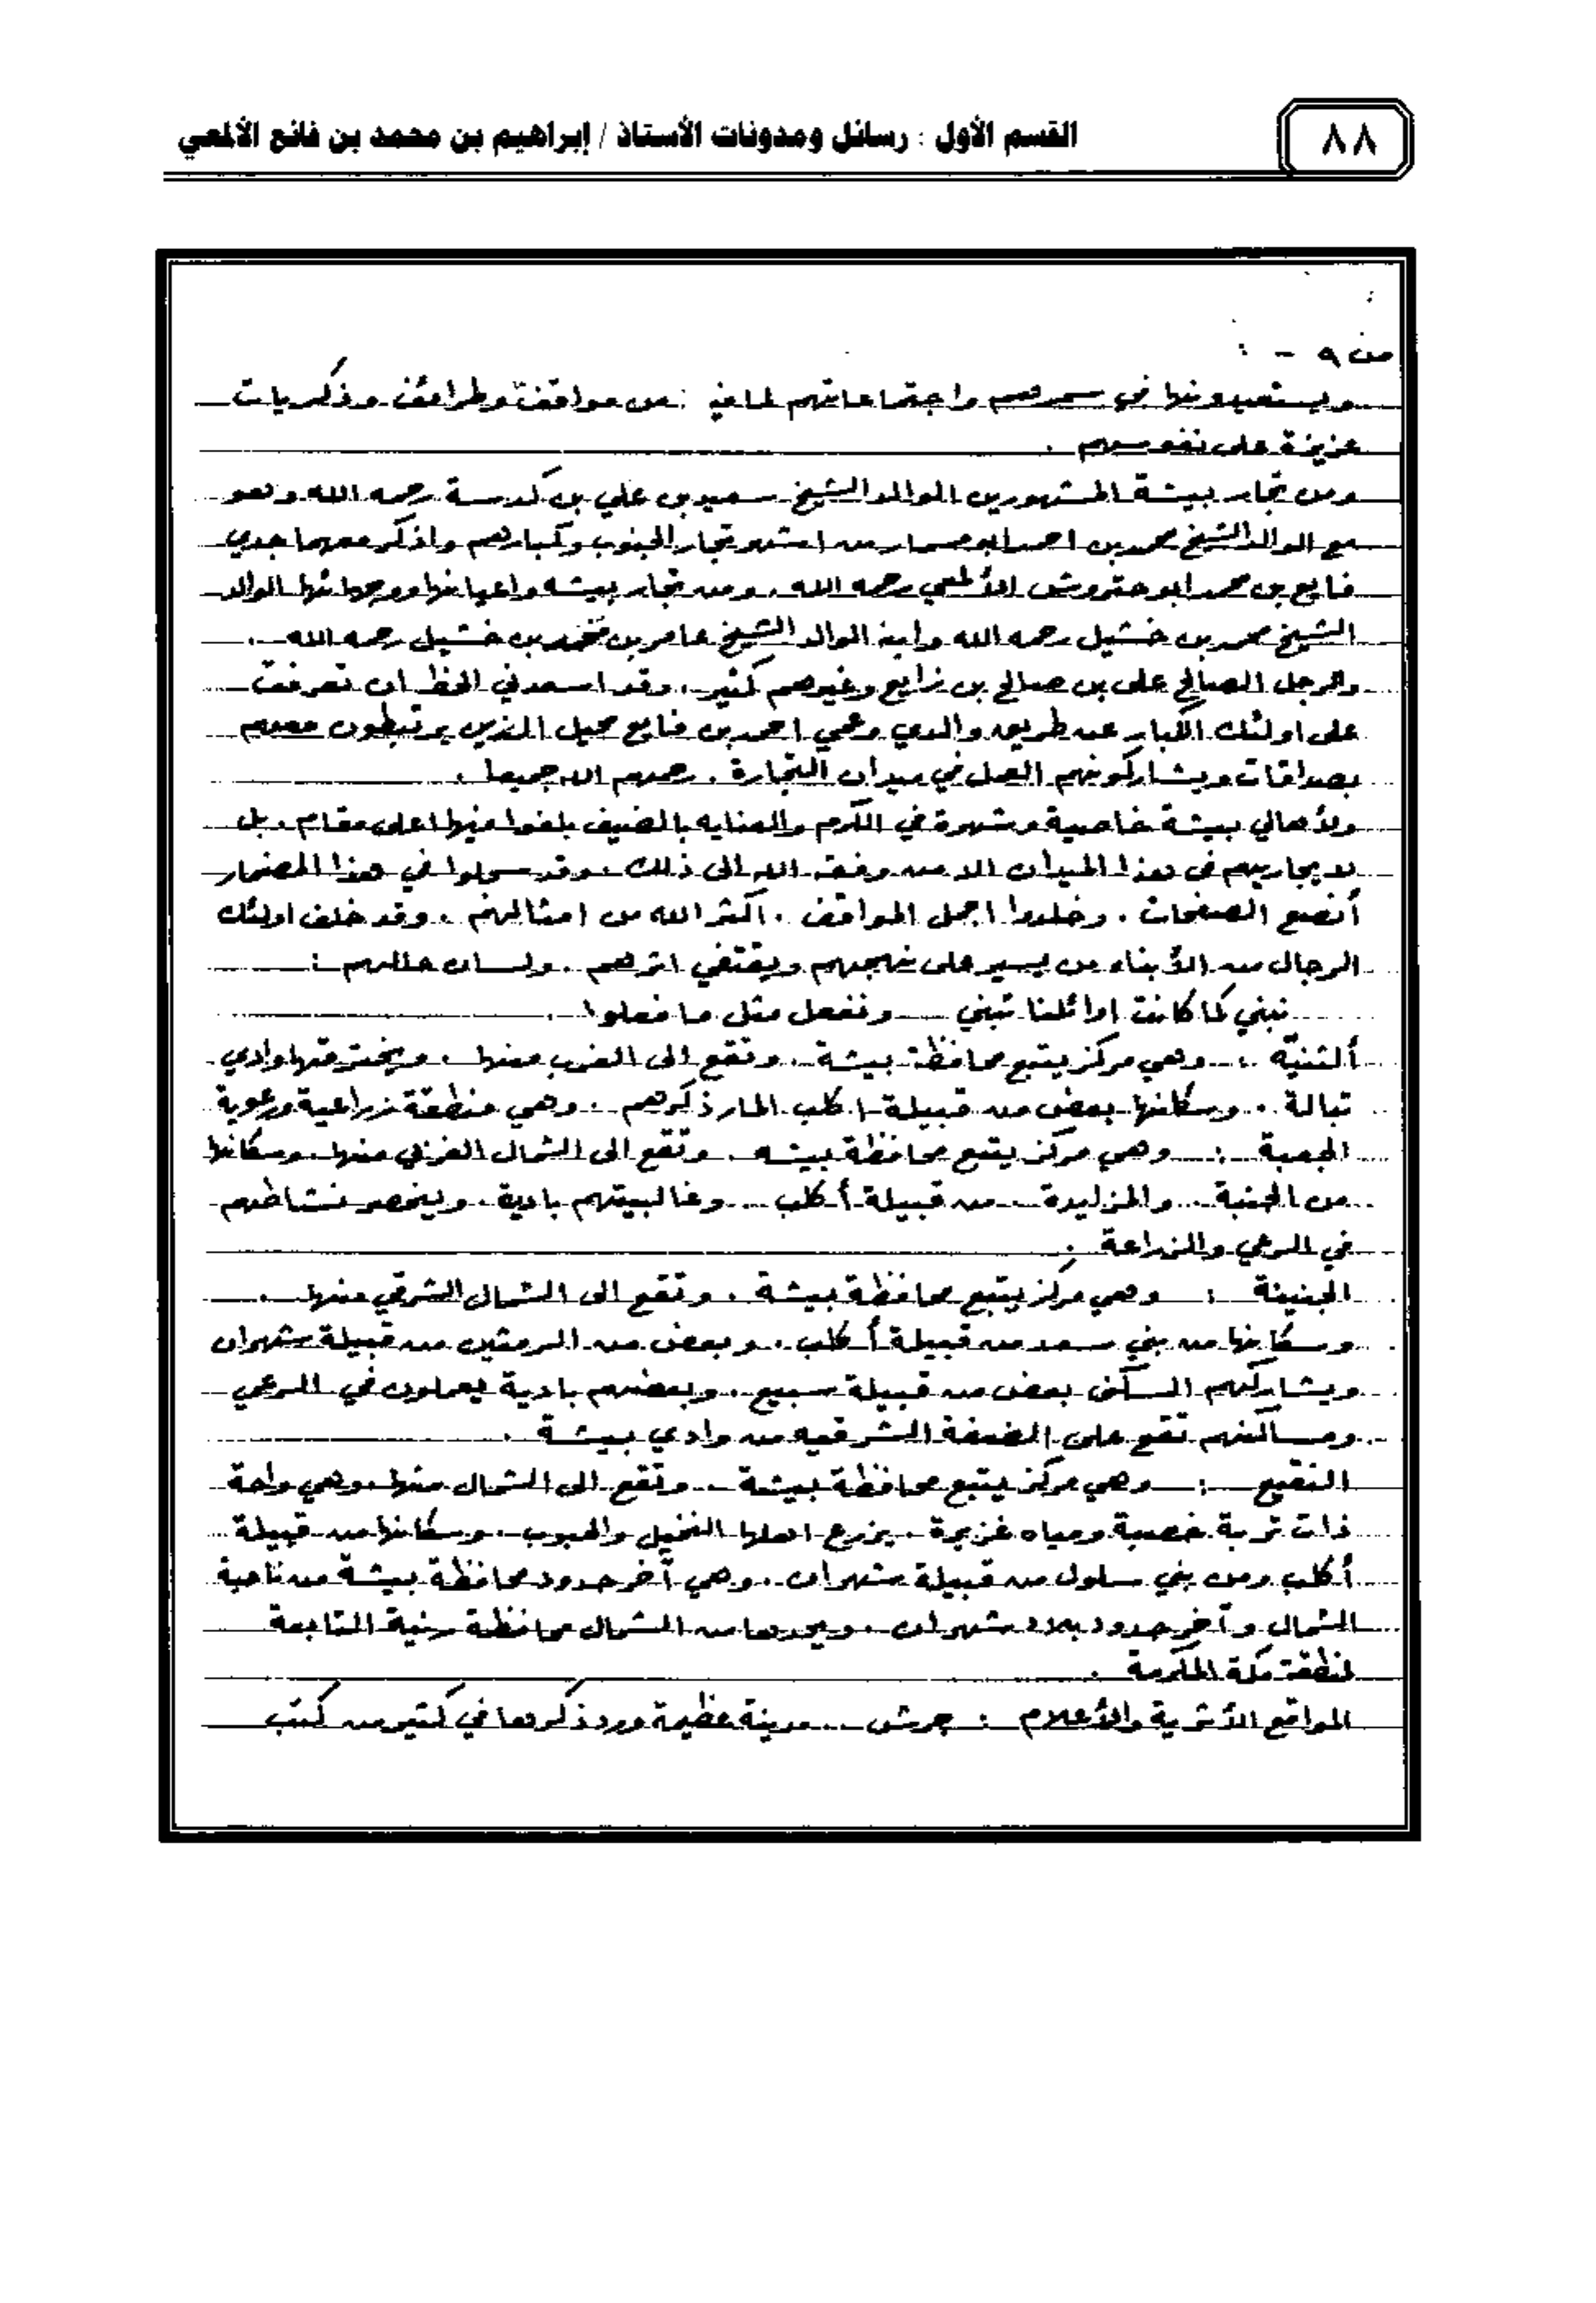 ٨٨
القسم الأول : رسائل ومدونات الأستاذ / إبراهيم بن محمد بن فائع الألمعي
ص ٩ - :
ويستعيدونها في سمرهم واجتماعاتهم لما فيه من مواقف وطرائف وذكريات
عزيزة على نفوسهم .
ومن تجار بيشة المشهورين الوالد الشيخ سعيد بن علي بن كدسة رحمه الله وهو
مع الوالد الشيخ محمد بن احمد ابو مسمار من اشهر تجار الجنوب وكبارهم واذكر معهما جدي
فايع بن محمد ابو حتروش الألمعي رحمه الله . ومن تجار بيشه واعيانها ووجهائها الوالد
الشيخ محمد بن خشيل رحمه الله وابنه الوالد الشيخ عامر بن محمد بن خشيل رحمه الله .
والرجل الصالح علي بن صالح بن زايع وغيرهم كثير . وقد اسعدني الحظ ان تعرفت
على اولئك الكبار عن طريق والدي وعمي احمد بن فايع محيل الذين يرتبطون معهم
بصداقات ويشاركونهم العمل في ميدان التجارة . رحمهم الله جميعا .
ولأهالي بيشة خاصية وشهرة في الكرم والعنايه بالضيف بلغوا فيها اعلى مقام . بل
لا يجاريهم في هذا الميدان الا من وفقه الله الى ذلك . وقد سجلوا في هذا المضمار
أنصع الصفحات . وخلدوا اجمل المواقف . اكثر الله من امثالهم . وقد خلف اولئك
الرجال من الأبناء من يسير على نهجهم ويقتفي اثرهم . ولسان حالهم :
نبني كما كانت اوائلنا تبني ــ ونفعل مثل ما فعلوا .
ألثنيّة : وهي مركز يتبع محافظة بيشة . وتقع الى الغرب منها . ويخترقها وادي
تبالة . وسكانها بعض من قبيلة اكلب المار ذكرهم . وهي منطقة زراعية ورعوية
الجعبة : وهي مركز يتبع محافظة بيشه . وتقع الى الشمال الغربي منها . وسكانها
من الجنبة . والمزايدة . من قبيلة أكلب . وغالبيتهم بادية . وينحصر نشاطهم
في الرعي والزراعة .
الجنينة : وهي مركز يتبع محافظة بيشة . وتقع الى الشمال الشرقي منها .
وسكانها من بني سعد من قبيلة أكلب . وبعض من الرمثين من قبيلة شهران
ويشاركهم السكن بعض من قبيلة سبيع . وبعضهم بادية يعملون في الرعي
ومساكنهم تقع على الضفة الشرقيه من وادي بيشة .
النقيع : وهي مركز يتبع محافظة بيشة . وتقع الى الشمال منها . وهي واحة
ذات تربة خصبة ومياه غزيرة . يزرع اهلها النخيل والحبوب . وسكانها من قبيلة
أكلب ومن بني سلول من قبيلة شهران . وهي آخر حدود محافظة بيشة من ناحية
الشمال وآخر حدود بلاد شهران . ويحدها من الشمال محافظة رنية التابعة
لمنطقة مكة المكرمة .
المواقع الأثرية والأعلام : جرش . مدينة عظيمة ورد ذكرها في كثير من كتب